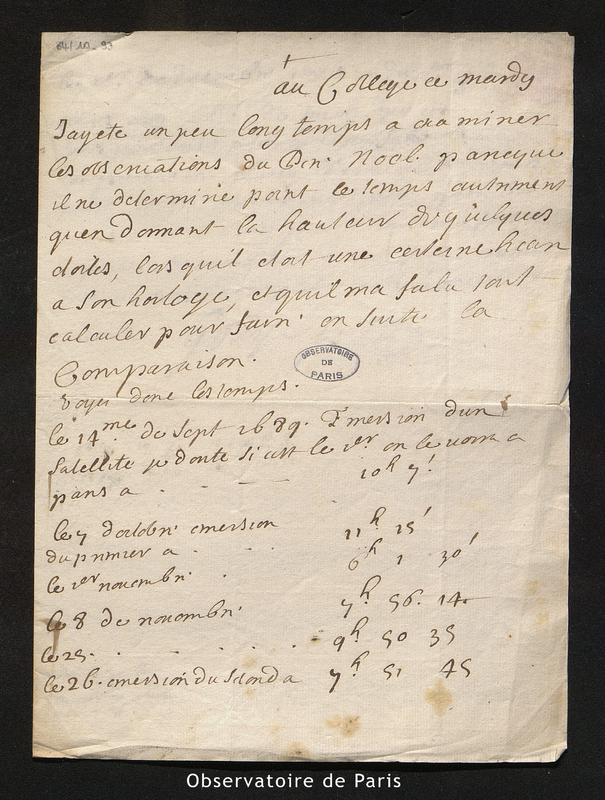 B4/10-93
au College ce mardy
Jayeté un peu long temps a examiner
les observations du P. Noel. parceque
il ne determine point le temps autrement
quen donnant la hauteur de quelques
etoiles, lors quil etoit une certaine heure
a son horloge, et quil ma falu tout
calculer pour faire en suite la
Comparaison.
voyes donc les temps.
le 14me de Sept 1689. Emersion dun
Satellite je doute si cest le 1er on le verra a
paris a . . . 10h 7'
le 7 doctobr. emersion
du premier a . . 11h 15'
le 1er novembr. . 6h 1 30'
le 8 de novembr. 7h 56. 14
le 25. . . . . . 9h 50 35
le 26. emersion du second a 7h 51 45
OBSERVATOIRE
DE
PARIS
Observatoire de Paris